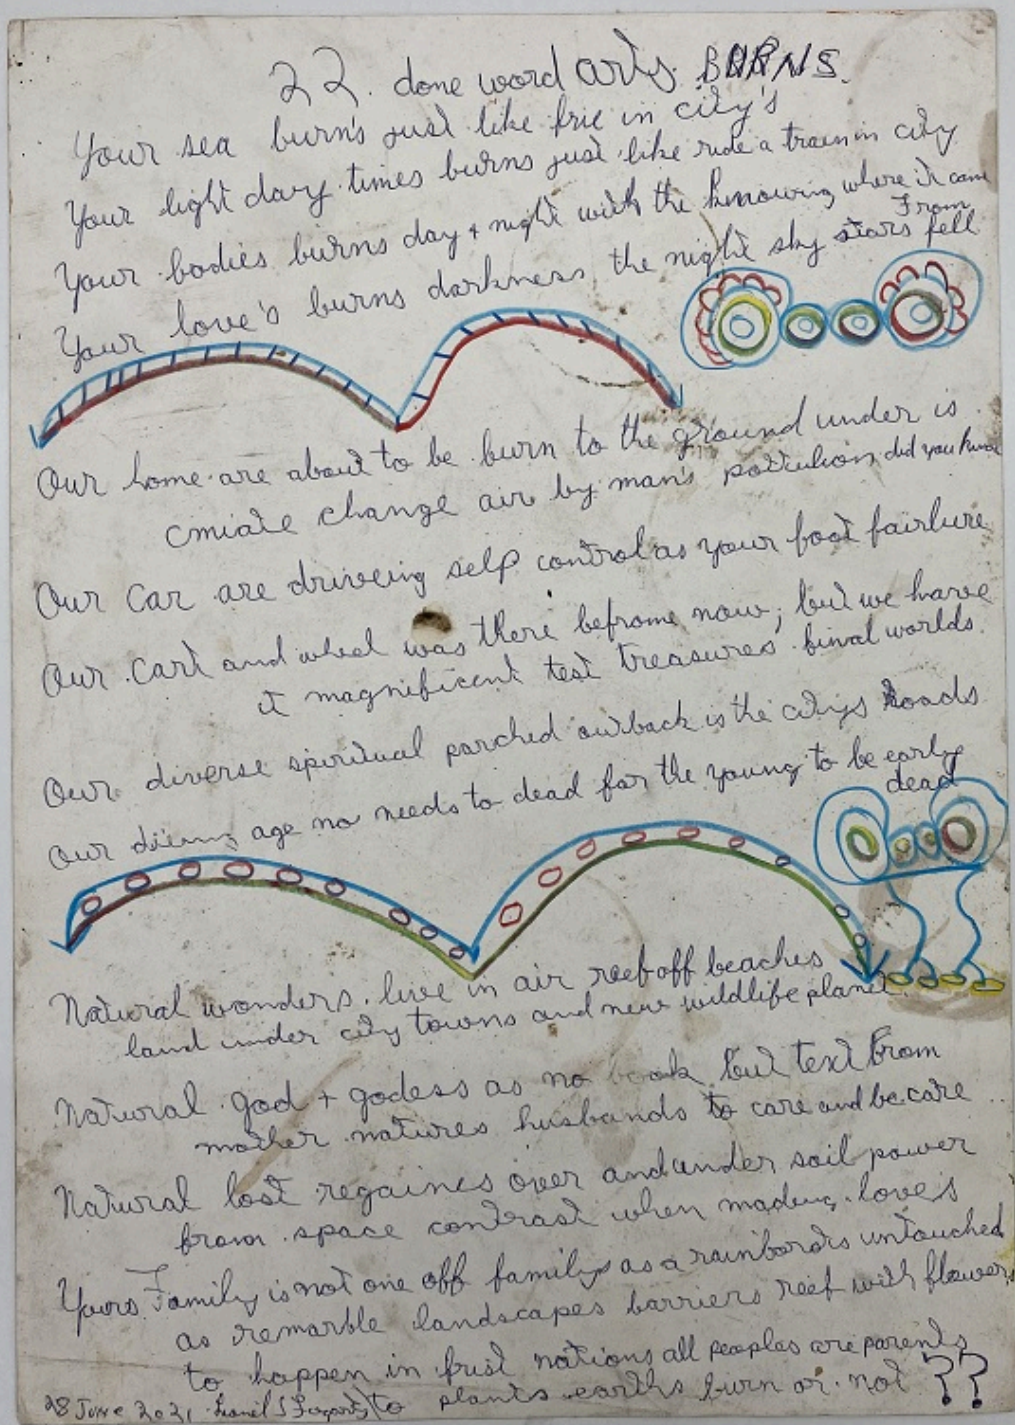 22. done word arts. BURNS.
Your sea burn's just like frie in city's
Your light davy times burns just like ride a train in city
Your bodies burns day + night with the knnowing where it came
From
Your love's burns darkness the night sky stars fell
Our home are about to be burn to the ground under is
cmiate change air by man's pollution did you know
Our Car are driveing self control as your foot fairlure
Our Cart and wheel was there beframe now, but we harve
it magnificent test treasures final worlds.
Our diverse spiritual parched outback is the citys Roads
Our age no needs to dead for the young to be early
dead
Natural wonders live in air reef off beaches
land under city towns and new wildlife planet.
Natural god + godess as no book But text From
mother natures husbands to care and be care ..
Natural lost regaines over and under soil power
from space contrast when mading love's
Yours Family is not one off familys as a untouched
as remarble landscapes barriers reef with flowers
to happen in frist nations all peoples are parents
28 June 2021 Lionel G Fogarty to plants earths burn or not ??